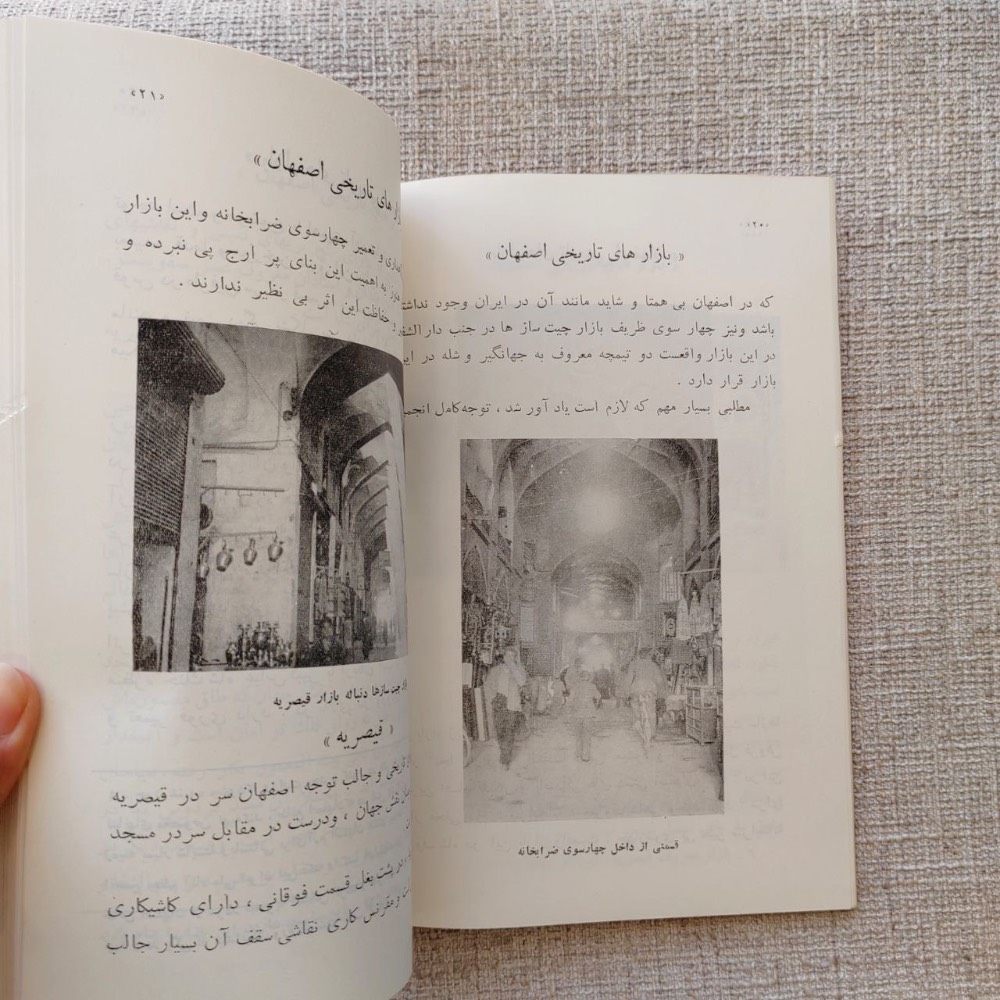 «۲۰»
« بازار های تاریخی اصفهان »
که در اصفهان بی همتا و شاید مانند آن در ایران وجود نداشته
باشد ونیز چهار سوی ظریف بازار چیت ساز ها در جنب دار الشفاء
در این بازار واقعست دو تیمچه معروف به جهانگیر و شله در این
بازار قرار دارد .
مطلبی بسیار مهم که لازم است یاد آور شد ، توجه کامل انجمن
قسمتی از داخل چهارسوی ضرابخانه
«۲۱»
های تاریخی اصفهان »
و تعمیر چهارسوی ضرابخانه واین بازار
به اهمیت این بنای پر ارج پی نبرده و
حفاظت این اثر بی نظیر ندارند .
چیت سازها دنباله بازار قیصریه
« قیصریه »
تاریخی و جالب توجه اصفهان سر در قیصریه
نقش جهان ، ودرست در مقابل سردر مسجد
در پشت بغل قسمت فوقانی ، دارای کاشیکاری
و مقرنس کاری نقاشی سقف آن بسیار جالب